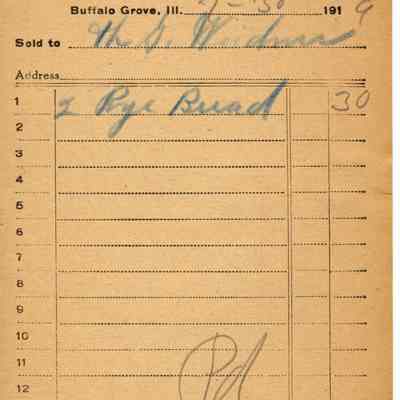 Buffalo Grove, Ill. 7-30 1919
Sold to
Address
1 2 Rye Bread 30
2
3
4
5
6
7
8
9
10
11
12
Pd